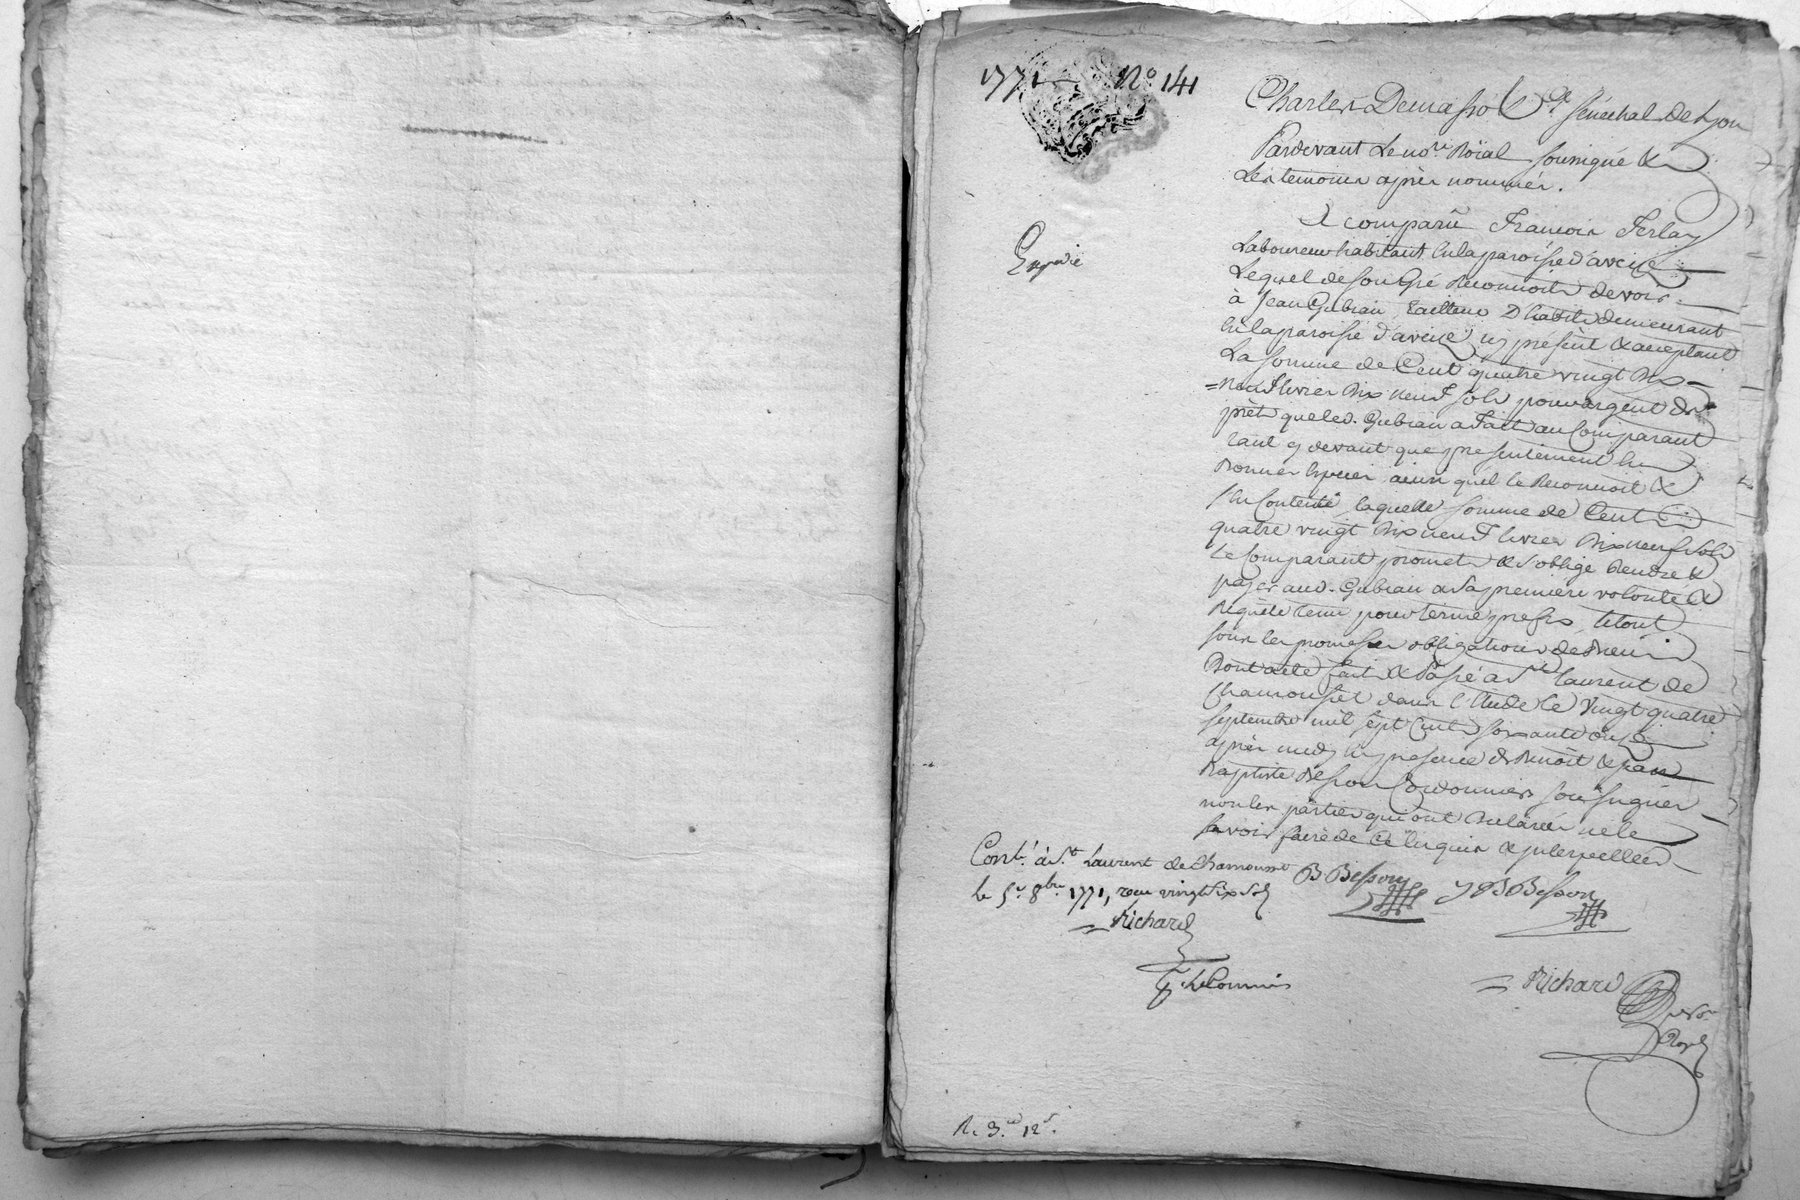 1771 No 141
Charles Demasso &c.a Sénéchal de Lyon
Pardevant Le no.re Roïal soussigné &
Les temoins après nommés.
Expédié
A comparû François Ferlay
Laboureur habitant en la paroisse d'aveize
Lequel de son gré Reconnoit devoir
à Jean Gubian, Tailleur D'habits demeurant
en la paroisse d'aveize icy présent & acceptant
La somme de Cent quatre vingt Dix
=neuf livres Dix neuf sols pour argent de
prêt que led. Gubian a fait au Comparant
tant cy devant que presentement en
Bonnes Espèces ainsi qu'il le Reconnoit &
s'en Contente, laquelle somme de Cent
quatre vingt Dix neuf livres Dix neuf sols
Le Comparant promet & s'oblige Rendre &
payer aud. Gubian a sa premiere volonté &
Requête tenu pour terme prefix, le tout
sous les promesses obligations de Biens
Dont acte fait & Passé a S.t Laurent de
Chamousset dans l'Etude le Vingt quatre
septembre mil sept Cent soixante onze
après midy En presence de Benoit & jean
Baptiste Besson Cordonniers soussignés
non les parties qui ont Declarées ne le
savoir faire de Ce Enquis & Interpellées
Cont.é à S.t Laurent de Chamousset
B Besson J B Besson
le 5.e 8bre 1771, reçu vingt six sols
Richard
Richard
R. 3.# 12.s